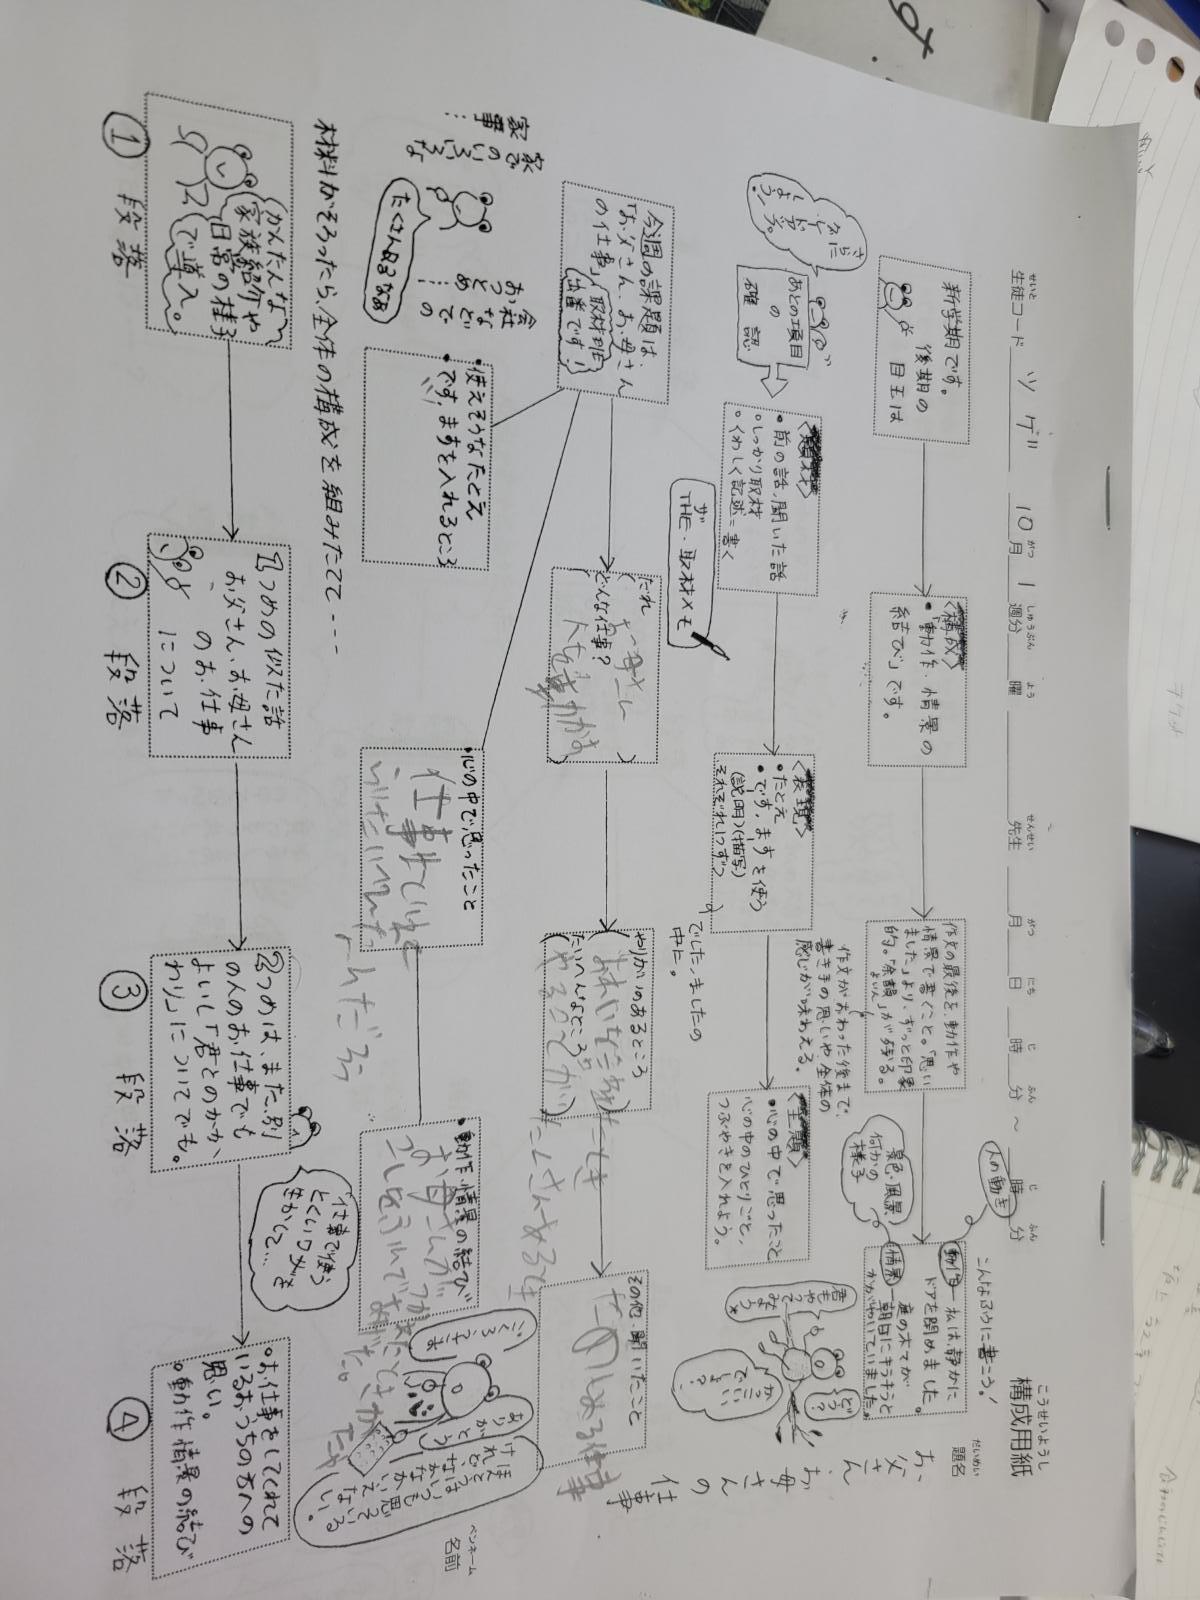 構成用紙
こうせいようし
題名
だいめい
お父さん、お母さんの仕事
生徒コード
せいと
ツゲ
10月1週分
がつ
しゅうぶん
曜
よう
先生
せんせい
月
がつ
日
にち
時
じ
分
ふん
～
時
じ
分
ふん
名前
ペンネーム
新学期です。
後期の
目玉は
〈構成〉
・「動作・情景の
結び」です。
作文の最後を、動作や
情景で書くこと。「思い
ました」より、ずっと印象
的。「余韻」が残る。
よいん
作文がおわった後まで、
書き手の思いや全体の
感じが味わえる。
人の動き
景色・風景
何かの
様子
こんなふうに書こう!
動作―私は静かに
ドアを閉めました。
情景―庭の木々が
朝日にキラキラと
かがやいていました。
あとの項目
の
確認
〈題材〉
・前の話、聞いた話
・しっかり取材
・くわしく記述=書く
〈表現〉
・たとえ
・です。ます。を使う
(説明)(描写)
それぞれ1つずつ
でした、ましたの
中に。
〈主題〉
・心の中で思ったこと
心の中のひとりごと、
つぶやきを入れよう。
君も
やって
みよう
どう?
かっこいい
でしょ?
ザ
THE・取材メモ
今週の課題は、
「お父さん、お母さん
の仕事」
取材班
出番です!
だれ
お母さん
どんな仕事?
やりがいのあるところ
たいへんなところ
その他・聞いたこと
家でのいろいろな
家事…
会社などでの
おつとめ…
たくさんあるなあ
・使えそうなたとえ
です。ますを入れるところ
・心の中で思ったこと
・動作・情景の結び
ごくろうさま
ありがとう
けれど、
なかなかいえない。
材料がそろったら、全体の構成を組みたてて----
かんたんな
家族紹介や
日常の様子
で導入。
①段落
1つめの似た話
お父さん、お母さん
のお仕事
について
②段落
2つめは、また別
の人のお仕事でも
よいし「君とのかか
わり」についてでも。
③段落
仕事で使う
とくいワザを
きかくと…
・お仕事をしてくれて
いるおうちの方への
思い。
・動作・情景の結び
④段落